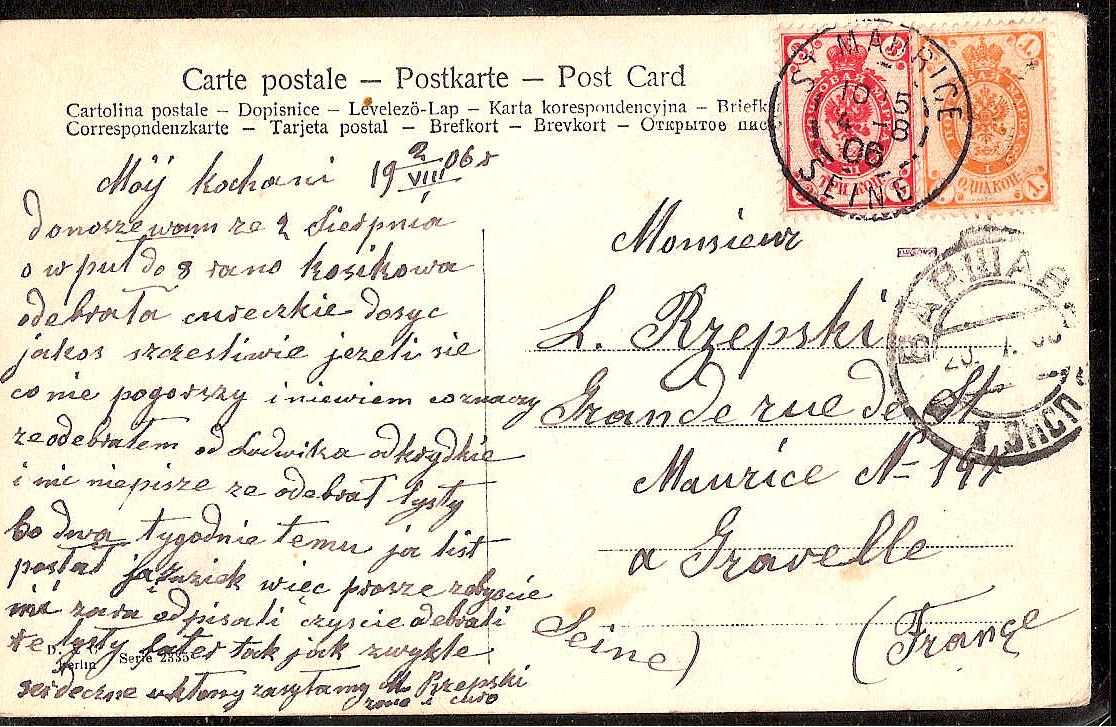 Carte postale – Postkarte – Post Card
Cartolina postale – Dopisnice – Levelező-Lap – Karta korespondencyjna – Briefk
Correspondenzkarte – Tarjeta postal – Brefkort – Brevkort – Открытое пис
ST MAURICE
10 15
4 -8
06
SEINE
ВАРШАВ
Mój kochani 19 2/VIII 06 r
donosze wam ze 2 Sierpnia
o w puł do 8 rano kosikowa
odebrała cureczkie dosyc
jakos szczesliwie jezeli sie
co nie pogorszy i niewiem co znaczy
ze odebrałem od Ludwika odkrydkie
i nic niepisze ze odebrał lysty
bo dwa tygodnie temu ja list
posłał więc prosze zebyscie
mi zara odpisali czyscie odebrali
te lysty tak jak zwykle
serdeczne ukłony zasyłamy Rzepski
zona i
D. Berlin Serie 2335
Monsieur
L. Rzepski
Grande rue de St
Maurice N-
a Gravelle
Seine) (France